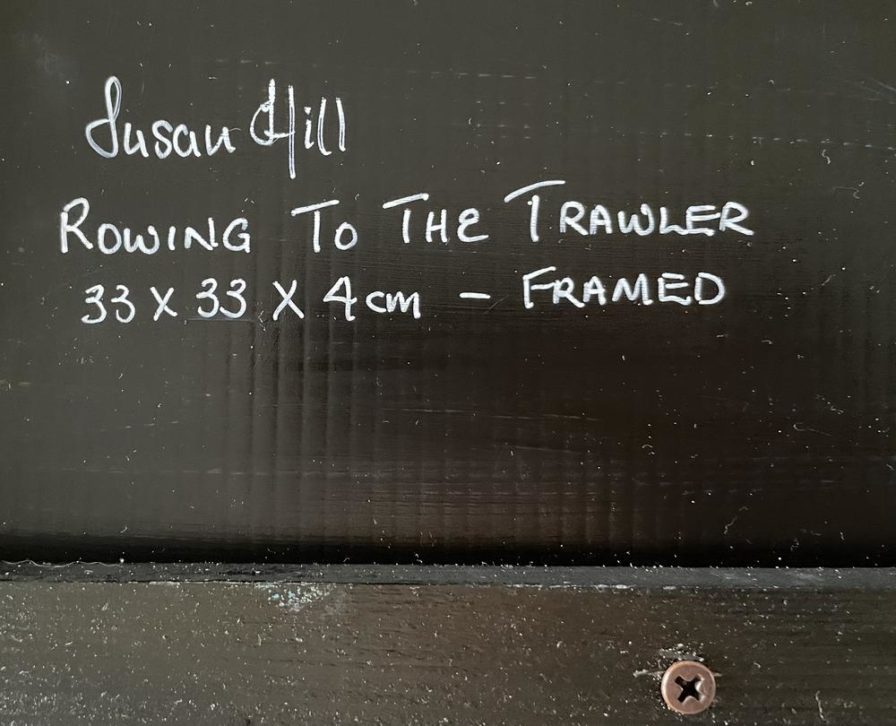 Susan Hill
ROWING TO THE TRAWLER
33 X 33 X 4 cm - FRAMED